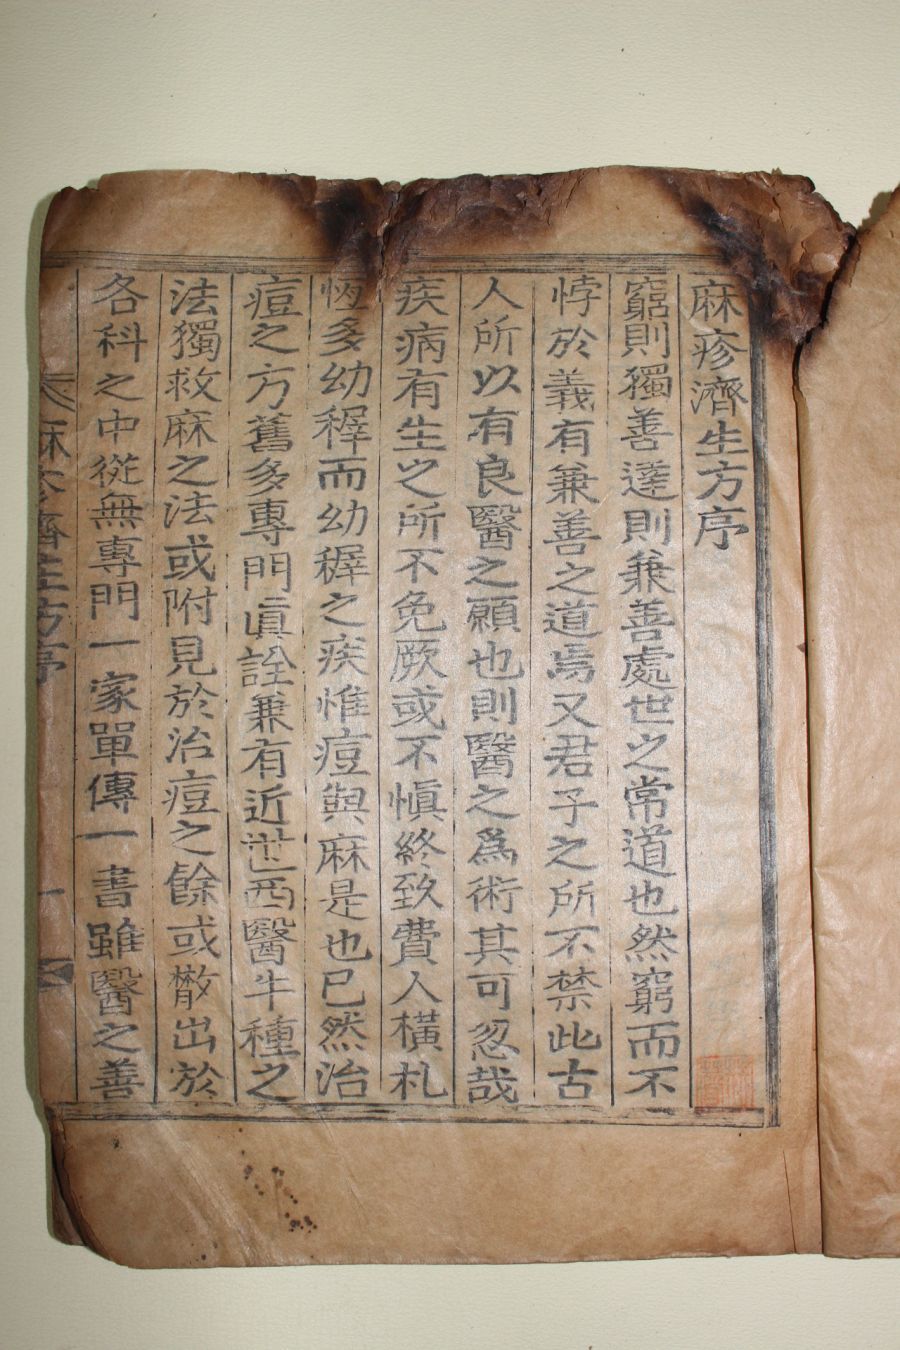 麻疹濟生方序
窮則獨善達則兼善處世之常道也然窮而不
悖於義有兼善之道焉又君子之所不禁此古
人所以有良醫之願也則醫之爲術其可忽哉
疾病有生之所不免厥或不愼終致費人橫札
恆多幼穉而幼穉之疾惟痘與麻是也已然治
痘之方舊多專門眞詮兼有近世西醫牛種之
法獨救麻之法或附見於治痘之餘或散出於
各科之中從無專門一家單傳一書雖醫之善
麻疹濟生方序
一